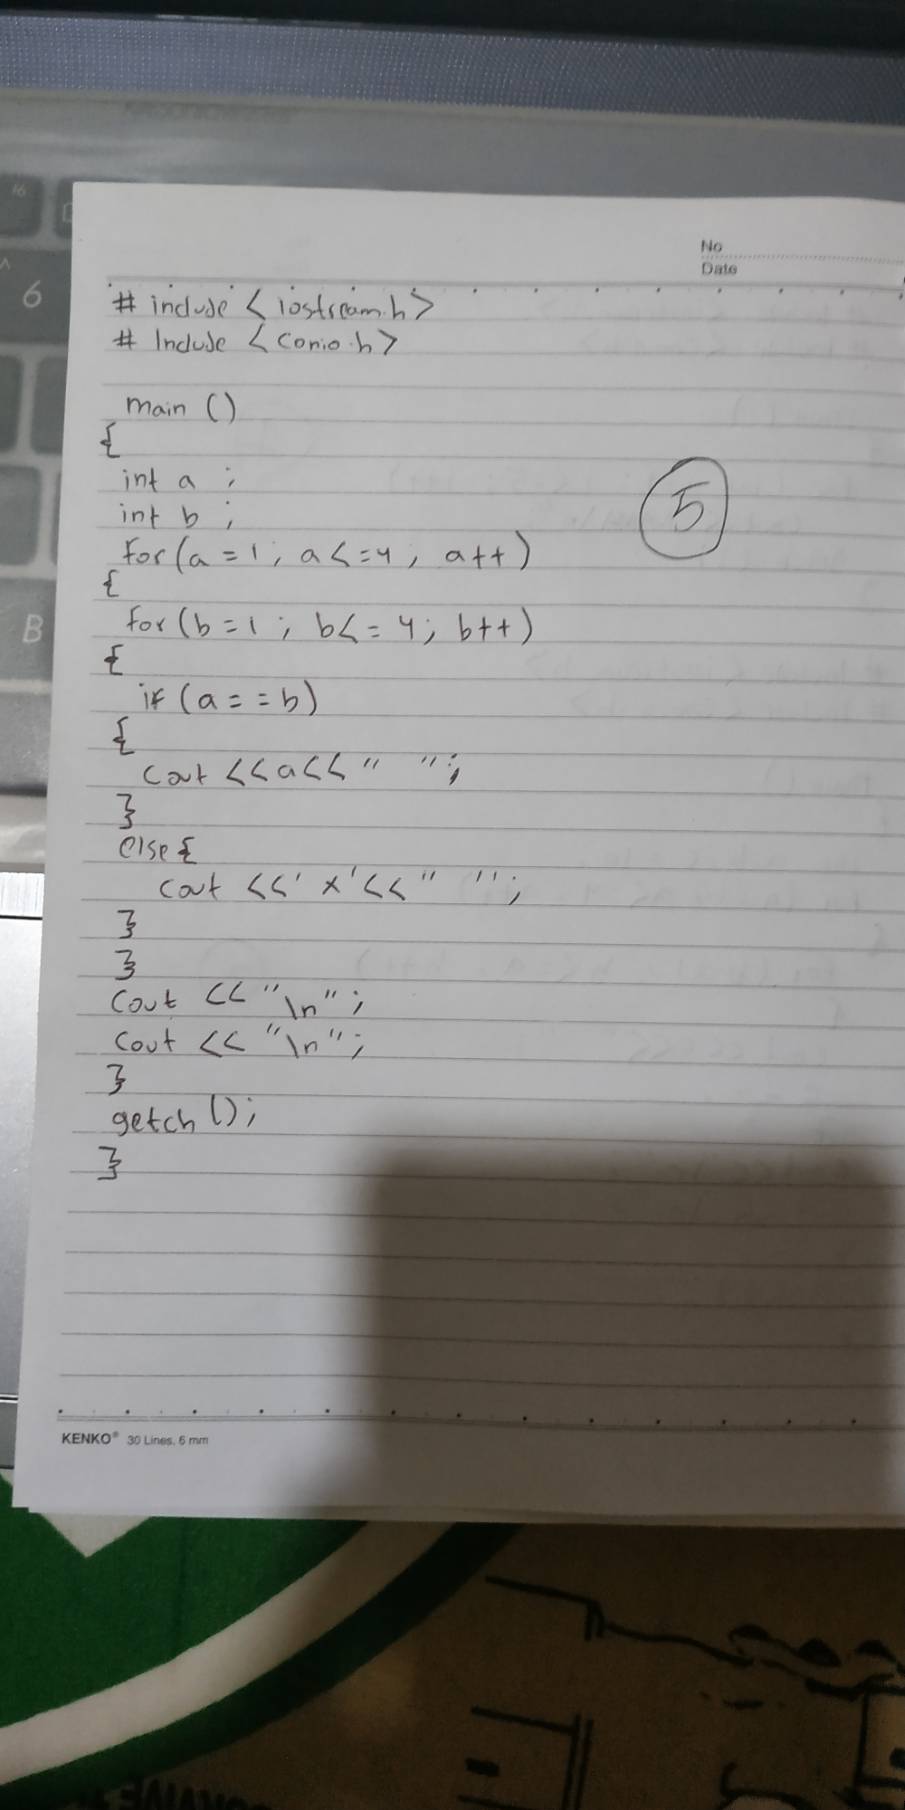 No
Date
# include < iostream.h>
# Include < conio.h>
main ()
{
int a ;
int b ;
for(a = 1 ; a <= 4 ; a++)
{
for (b = 1 ; b <= 4 ; b++)
{
if (a = = b)
{
cout << a << "  " ;
}
else {
cout << ' x ' << "  " ;
}
}
cout << "\n" ;
cout << "\n" ;
}
getch () ;
}
5
KENKO® 30 Lines, 6 mm
6
B